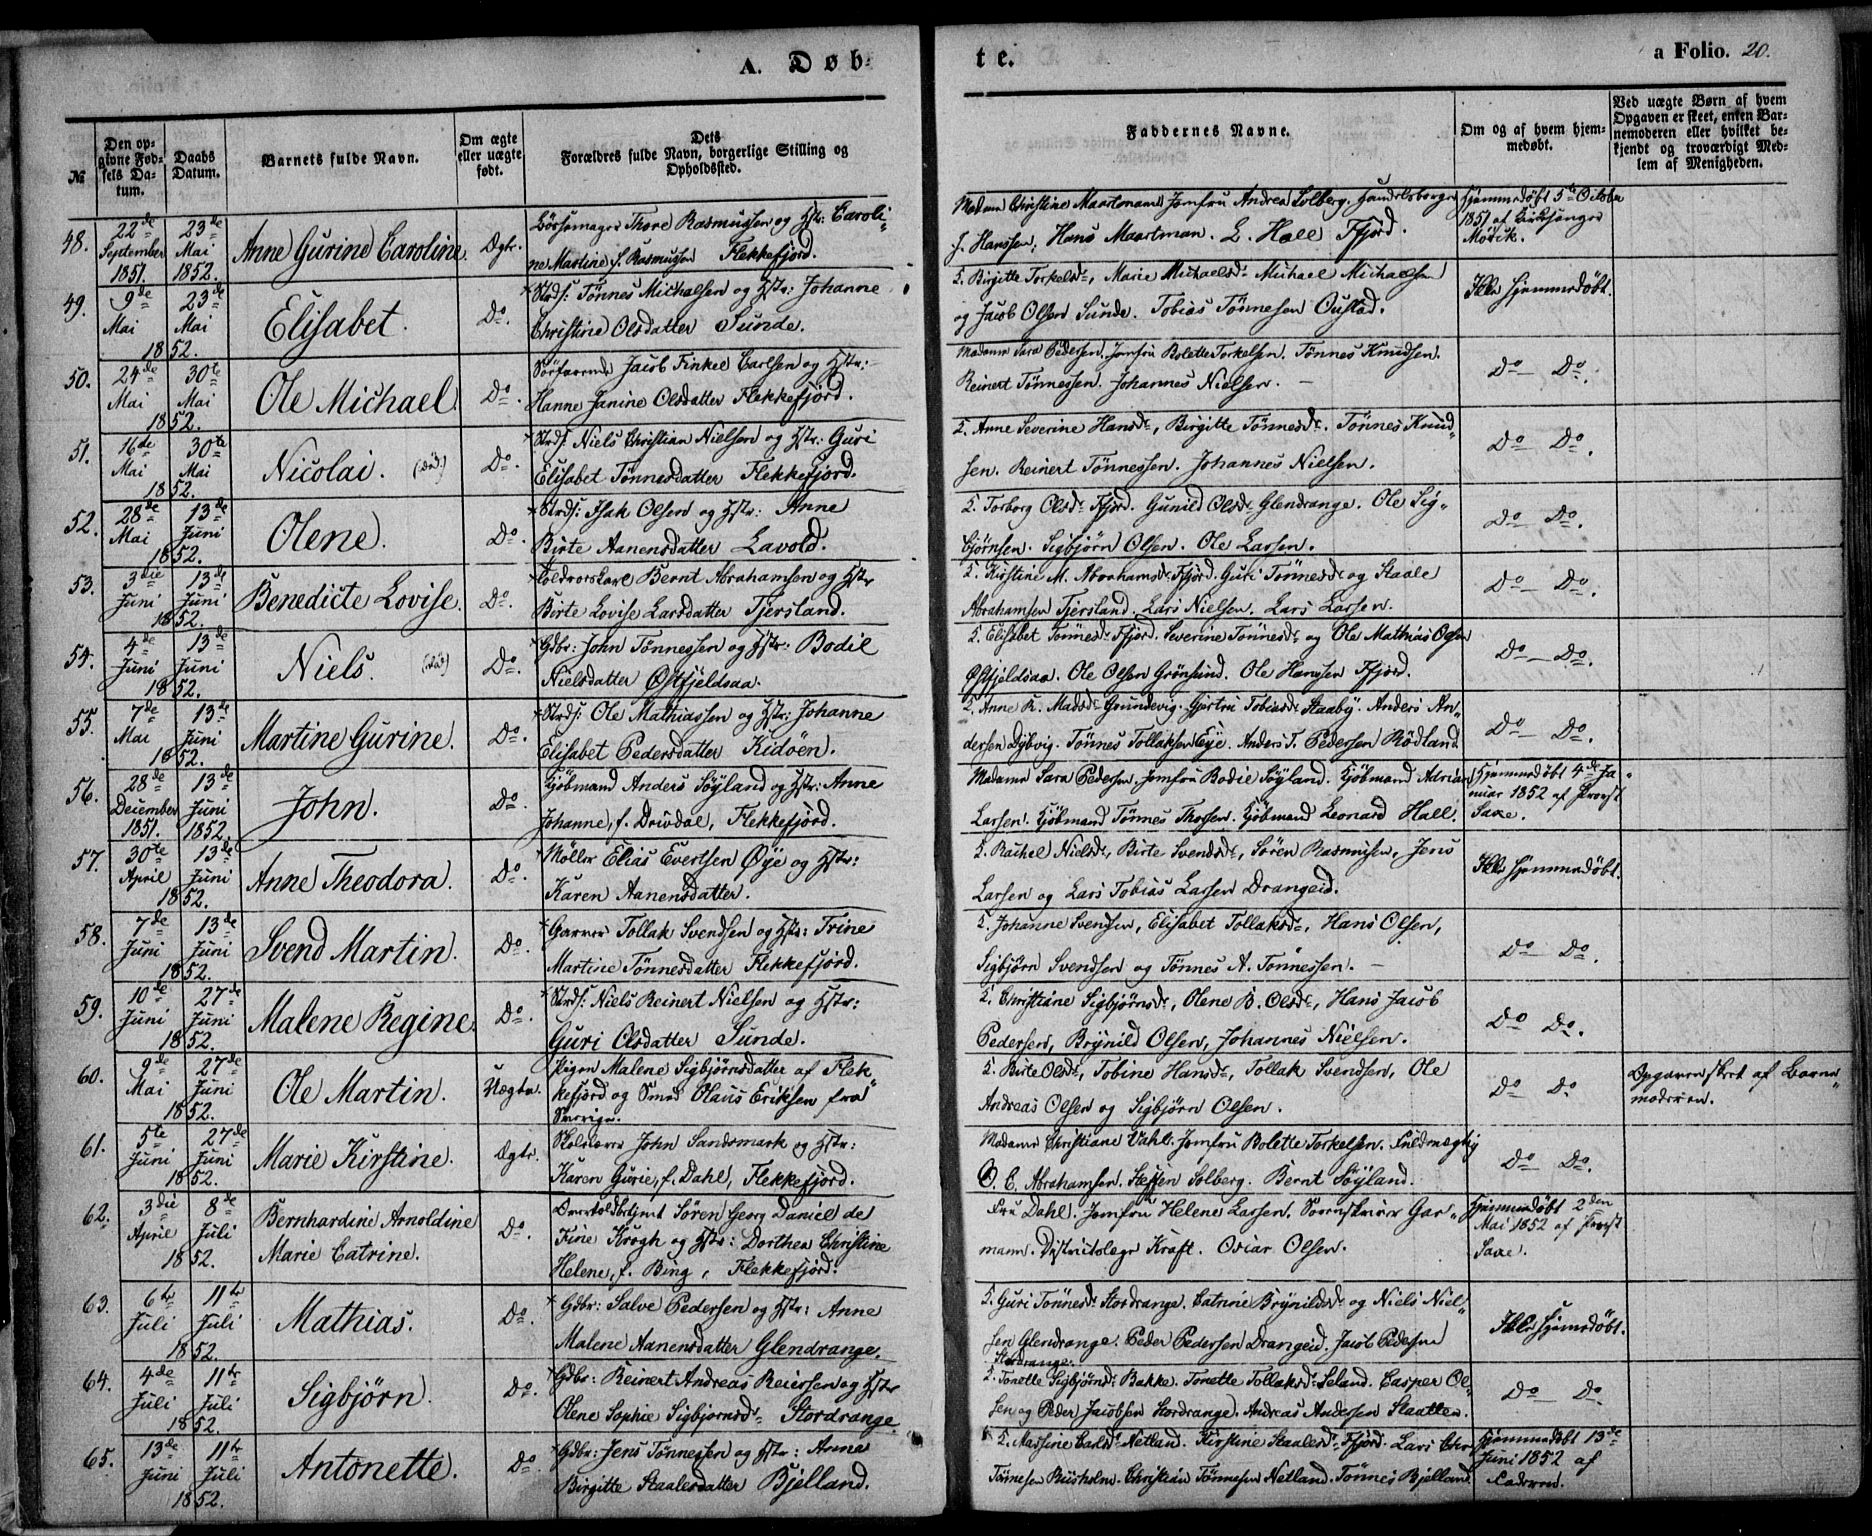 A. Døb-
te.
a Folio. 20.
№
Den op-
givne Fød-
sels Da-
tum.
Daabs
Datum.
Barnets fulde Navn.
Om ægte
eller uægte
født.
Dets
Forældres fulde Navn, borgerlige Stilling og
Opholdssted.
Faddernes Navne.
Om og af hvem hjem-
medøbt.
Ved uægte Børn af hvem
Opgaven er skeet, enten Bar-
nemoderen eller hvilket be-
kjendt og troværdigt Med-
lem af Menigheden.
48. 22de September 1851. 23de Mai 1852. Anne Gurine Caroline. Ægte.
Thore Rasmussen og Hstr: Caroli-
ne Martine f. Rasmussen Flekkefjord.
Madam Christine Maartmann, Jomfru Andrea Solberg, Handelsborger
J. Hanssen, Hans Maartman. L. Hall Fjord.
Hjemmedøbt 5te October
1851 af Kirkesanger
Møvik.
49. 9de Mai 23de Mai 1852. Elisabet. Do.
Strds: Tønnes Michaelsen og Hstr: Johanne
Christine Olsdatter Sunde.
Birgitte Torkelsdr, Marie Michaelsdr. Michael Michaelsen
og Jacob Olsen Sunde. Tobias Tønnesen Oustad.
Ikke hjemmedøbt.
50. 24de Mai 30te Mai 1852. Ole Michael. Do.
Søfarende Jacob Finkel Carlsen og Hstr:
Hanne Janine Olsdatter Flekkefjord.
Madame Sara Pedersen. Jomfru Bolette Torkelsen. Tønnes Knudsen.
Reinert Tønnessen. Johannes Nielsen.
Do — Do.
51. 16de Mai 30te Mai 1852. Nicolai. (død.) Do.
Strds: Niels Christian Nielsen og Hstr: Guri
Elisabet Tønnesdatter Flekkefjord.
Anne Severine Hansdr, Birgitte Tønnesdr. Tønnes Knud-
sen. Reinert Tønnessen. Johannes Nielsen.
Do — Do.
52. 28de Mai 13de Juni 1852. Olene. Do.
Strds: Isak Olsen og Hstr: Anne
Birte Aanensdatter Lavold.
Torborg Olsdr Fjord. Gunild Olsdr Glendrange. Ole Sig-
bjørnsen. Sigbjørn Olsen. Ole Larsen.
Do — Do.
53. 3die Juni 13de Juni 1852. Benedicte Lovise. Do.
Bernt Abrahamsen og Hstr
Birte Lovise Larsdatter Tjersland.
Kristine M. Abrahamsdr Fjord. Guri Tønnesdr og Staale
Abrahamsen Tjersland. Lars Nielsen. Lars Larsen.
Do — Do.
54. 4de Juni 13de Juni 1852. Niels. (død) Do.
Gdbr: John Tønnessen og Hstr: Bodil
Nielsdatter Østfjeldsaa.
Elisabet Tønnesdr Fjord. Severine Tønnesdr og Ole Mathias Olsen
Østfjeldsaa. Ole Olsen Grønsund. Ole Hansen Fjord.
Do — Do.
55. 7de Mai 13de Juni 1852. Martine Gurine. Do.
Strds: Ole Mathiassen og Hstr: Johanne
Elisabet Pedersdatter Kidøen.
Anne K. Madsdr Grundevig. Gjertru Tobiasdr Staaby. Anders An-
dersen Dybvig. Tønnes Tollaksen Eye. Anders T. Pedersen Rødland.
Do — Do.
56. 28de December 1851. 13de Juni 1852. John. Do.
Kjøbmand Anders Søyland og Hstr: Anne
Johanne, f. Drivdal, Flekkefjord.
Madame Sara Pedersen. Jomfru Bodie Søyland. Kjøbmand Adrian
Larsen. Kjøbmand Tønnes Thorsen. Kjøbmand Leonard Hall.
Hjemmedøbt 4de Ja-
nuar 1852 af Provst
Saxe.
57. 30te April 13de Juni 1852. Anne Theodora. Do.
Møller Elias Evertsen Øye og Hstr:
Karen Aanensdatter.
Rachel Nielsdr, Birte Svendsdr, Søren Rasmussen, Jens
Larsen og Lars Tobias Larsen Drangeid.
Ikke hjemmedøbt.
58. 7de Juni 13de Juni 1852. Svend Martin. Do.
Garver Tollak Svendsen og Hstr: Trine
Martine Tønnesdatter Flekkefjord.
Johanne Svendsen, Elisabet Tollaksdr, Hans Olsen,
Sigbjørn Svendsen og Tønnes A. Tønnessen.
Do — Do.
59. 10de Juni 27de Juni 1852. Malene Regine. Do.
Strds: Niels Reinert Nielsen og Hstr:
Guri Olsdatter Sunde.
Christiane Sigbjørnsdr, Olene B. Olsdr, Hans Jacob
Pedersen, Brynild Olsen, Johannes Nielsen.
Do Do.
60. 9de Mai 27de Juni 1852. Ole Martin. Uægte.
Pigen Malene Sigbjørnsdatter af Flek-
kefjord og Smed Olaus Eriksen fra
Sverige.
Birte Olsdr, Tobine Hansdr, Tollak Svendsen, Ole
Andreas Olsen og Sigbjørn Olsen.
Do Do.
Opgaven skeet af Barne-
moderen.
61. 5te Juni 27de Juni 1852. Marie Kirstine. Ægte.
John Sandsmark og Hstr:
Karen Gurie, f. Dahl, Flekkefjord.
Madame Christiane Vahl. Jomfru Bolette Torkelsen. Fuldmægtig
O. C. Abrahamsen. Steffen Solberg. Bernt Søyland.
Do Do.
62. 3die April 8de Juli 1852. Bernhardine Arnoldine
Marie Catrine. Do.
Overtoldbetjent Søren Georg Daniel de
Fine Krogh og Hstr: Dorthea Christine
Helene, f. Bing, Flekkefjord.
Fru Dahl. Jomfru Helene Larsen. Sorenskriver Gar-
mann. Districtslæge Kraft. Oscar Olsen.
Hjemmedøbt 2den
Mai 1852 af Provst
Saxe.
63. 6te Juli 11te Juli 1852. Mathias. Do.
Gdbr: Salve Pedersen og Hstr: Anne
Malene Aanensdatter Glendrange.
Guri Tønnesdr Stordrange. Catrine Brynildsdr og Niels Niel-
sen Glendrange. Peder Pedersen Drangeid. Jacob Pedersen
Stordrange.
Ikke hjemmedøbt.
64. 4de Juli 11te Juli 1852. Sigbjørn. Do.
Gdbr: Reinert Andreas Reiersen og Hstr
Olene Sophie Sigbjørnsdr Stordrange
Tonette Sigbjørnsdr Bakke. Tonette Tollaksdr Seland. Casper Ol-
sen og Peder Jacobsen Stordrange. Andreas Andersen Slaatten.
Do Do.
65. 13de Juni 11te Juli 1852. Antonette. Do.
Gdbr: Jens Tønnessen og Hstr: Anne
Birgitte Staalesdatter Bjelland.
Massine Carlsdr Netland. Kirstine Staalesdr Fjord. Lars Chr.
Tønnesen Busholm. Christian Tønnesen Netland. Tønnes Bjelland.
Hjemmedøbt 13de
Juni 1852 af
Faderen.